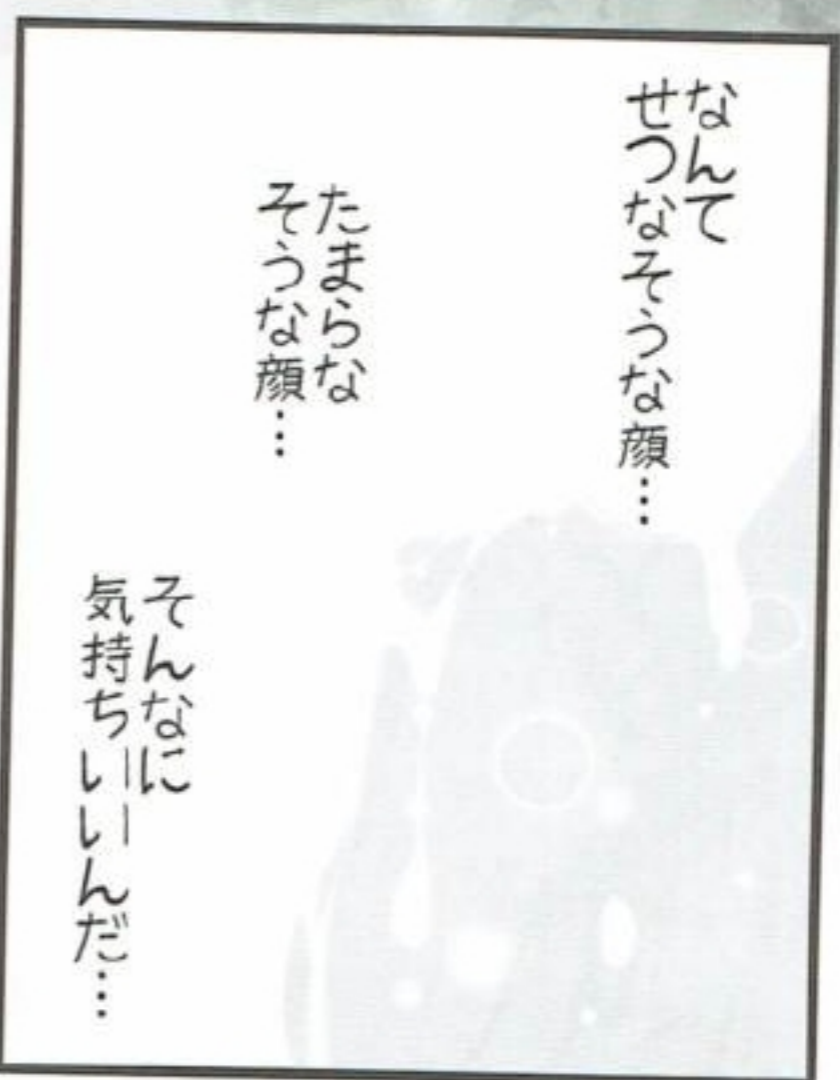 なんて
せつなそうな顔…
たまらな
そうな顔…
そんなに
気持ちいいんだ…